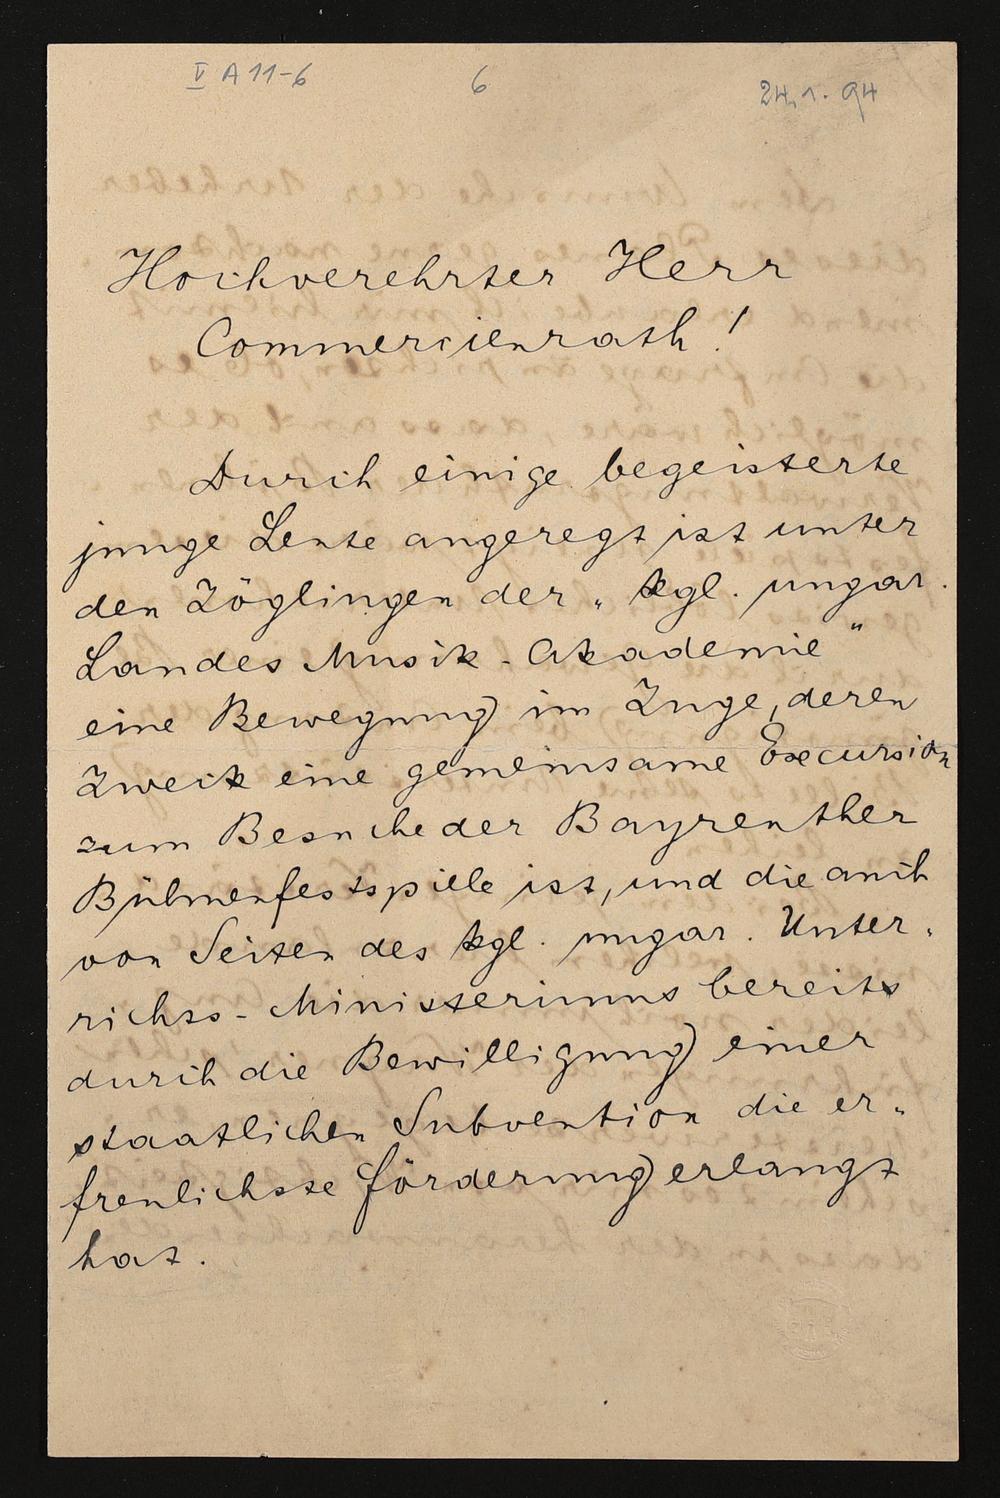 V A 11-6 6 24.1.94
Hochverehrter Herr
Commercienrath!
Durch einige begeisterte
junge Leute angeregt ist unter
den Zöglingen der „ kgl. ungar.
Landes Musik-Akademie"
eine Bewegung im Zuge, deren
Zweck eine gemeinsame Excursion
zum Besuche der Bayreuther
Bühnenfestspiele ist, und die auch
von Seiten des kgl. ungar. Unter-
richts-Ministeriums bereits
durch die Bewilligung einer
staatlichen Subvention die er-
freulichste Förderung erlangt
hat.